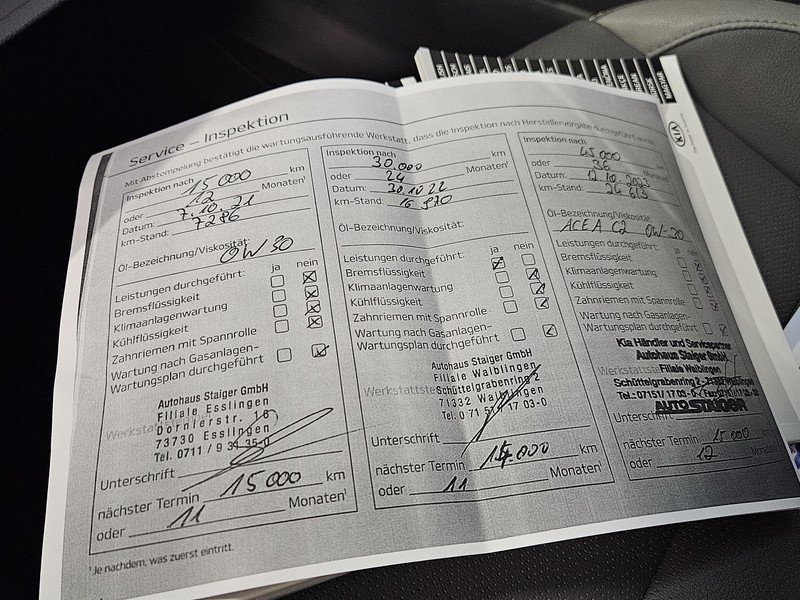 Service – Inspektion
Mit Abstempelung bestätigt die wartungsausführende Werkstatt, dass die Inspektion nach Herstellervorgabe durchgeführt wurde.
Inspektion nach 15 000 km
oder 12 Monaten¹
Datum: 7.10.21
km-Stand: 7286
Öl-Bezeichnung/Viskosität:
0W30
Leistungen durchgeführt: ja nein
Bremsflüssigkeit
Klimaanlagenwartung
Kühlflüssigkeit
Zahnriemen mit Spannrolle
Wartung nach Gasanlagen-
Wartungsplan durchgeführt
Autohaus Staiger GmbH
Filiale Esslingen
Dornierstr. 16
73730 Esslingen
Tel. 0711 / 9 31 35-0
Unterschrift
nächster Termin 15 000 km
oder 11 Monaten¹
Inspektion nach 30.000 km
oder 24 Monaten¹
Datum: 30.10.22
km-Stand: 16 970
Öl-Bezeichnung/Viskosität:
Leistungen durchgeführt: ja nein
Bremsflüssigkeit
Klimaanlagenwartung
Kühlflüssigkeit
Zahnriemen mit Spannrolle
Wartung nach Gasanlagen-
Wartungsplan durchgeführt
Autohaus Staiger GmbH
Filiale Waiblingen
Werkstattste Schüttelgrabenring 2
71332 Waiblingen
Tel. 0 71 51 / 17 03-0
Unterschrift
nächster Termin 15.000 km
oder 11 Monaten¹
Inspektion nach 45 000 km
oder 36 Monaten
Datum: 12.10.2023
km-Stand: 24 613
Öl-Bezeichnung/Viskosität:
ACEA C2 0W-30
Leistungen durchgeführt: ja nein
Bremsflüssigkeit
Klimaanlagenwartung
Kühlflüssigkeit
Zahnriemen mit Spannrolle
Wartung nach Gasanlagen-
Wartungsplan durchgeführt
Kia Händler und Servicepartner
Autohaus Staiger GmbH
Werkstattste Filiale Waiblingen
Schüttelgrabenring 2 - Waiblingen
Tel.: 07151/ 17 03-0
AUTO STAIGER
Unterschrift
nächster Termin 15 000
oder 12 Monaten
¹ Je nachdem, was zuerst eintritt.
KIA
MAGYAR